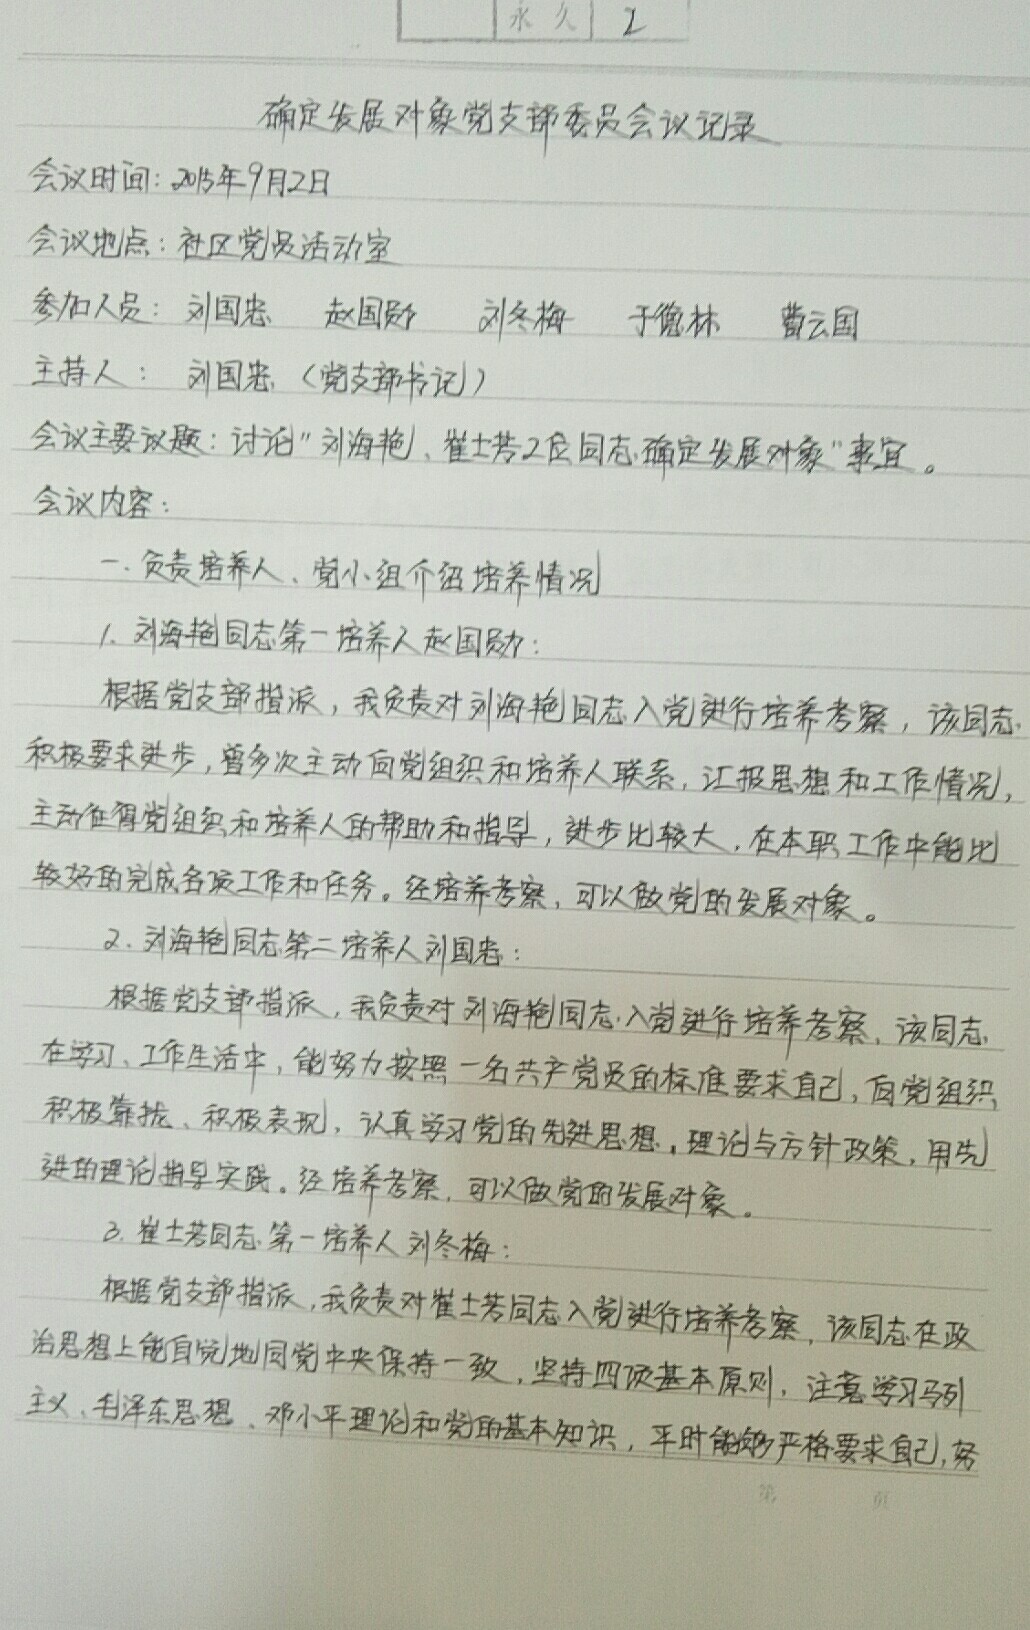 永久 2
确定发展对象党支部委员会议记录
会议时间：2015年9月2日
会议地点：社区党员活动室
参加人员： 刘国忠 赵国勋 刘冬梅 于德林 曹云国
主持人： 刘国忠（党支部书记）
会议主要议题：讨论“刘海艳、崔士芳2位同志确定发展对象”事宜。
会议内容：
一.负责培养人、党小组介绍培养情况
1.刘海艳同志第一培养人赵国勋：
根据党支部指派，我负责对刘海艳同志入党进行培养考察，该同志
积极要求进步，曾多次主动向党组织和培养人联系，汇报思想和工作情况，
主动征得党组织和培养人的帮助和指导，进步比较大，在本职工作中能比
较好的完成各项工作和任务。经培养考察，可以做党的发展对象。
2.刘海艳同志第二培养人刘国忠：
根据党支部指派，我负责对刘海艳同志入党进行培养考察，该同志
在学习、工作生活中，能努力按照一名共产党员的标准要求自己，向党组织
积极靠拢、积极表现，认真学习党的先进思想，理论与方针政策，用先
进的理论指导实践。经培养考察，可以做党的发展对象。
3.崔士芳同志第一培养人刘冬梅：
根据党支部指派，我负责对崔士芳同志入党进行培养考察，该同志在政
治思想上能自觉地同党中央保持一致，坚持四项基本原则，注意学习马列
主义、毛泽东思想、邓小平理论和党的基本知识，平时能够严格要求自己，努
第 页